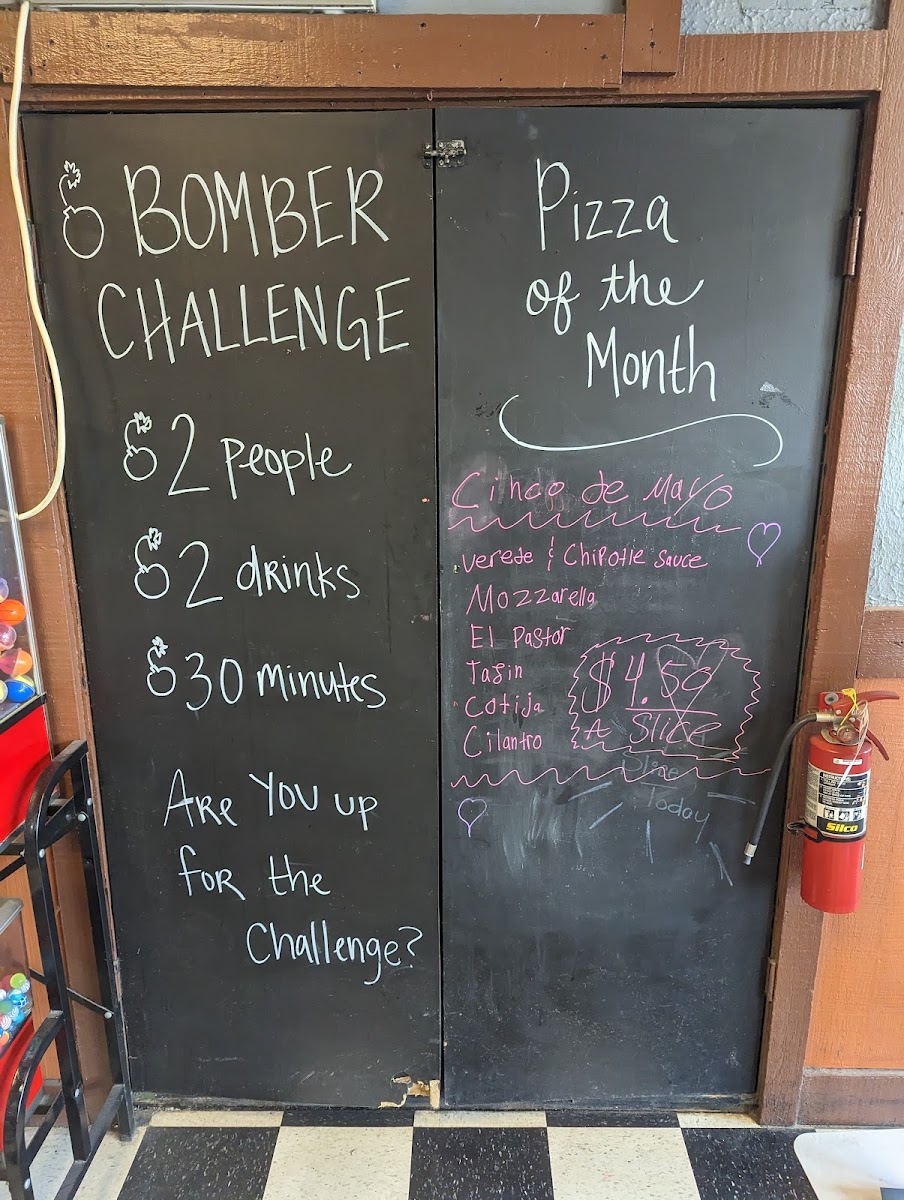 BOMBER
CHALLENGE
2 people
2 drinks
30 minutes
Are you up
for the
Challenge?
Pizza
of the
Month
Cinco de Mayo
verede & Chipotle sauce
Mozzarella
El Pastor
Tajin
Cotija
Cilantro
$4.50
A Slice
Slice
Today
Silco